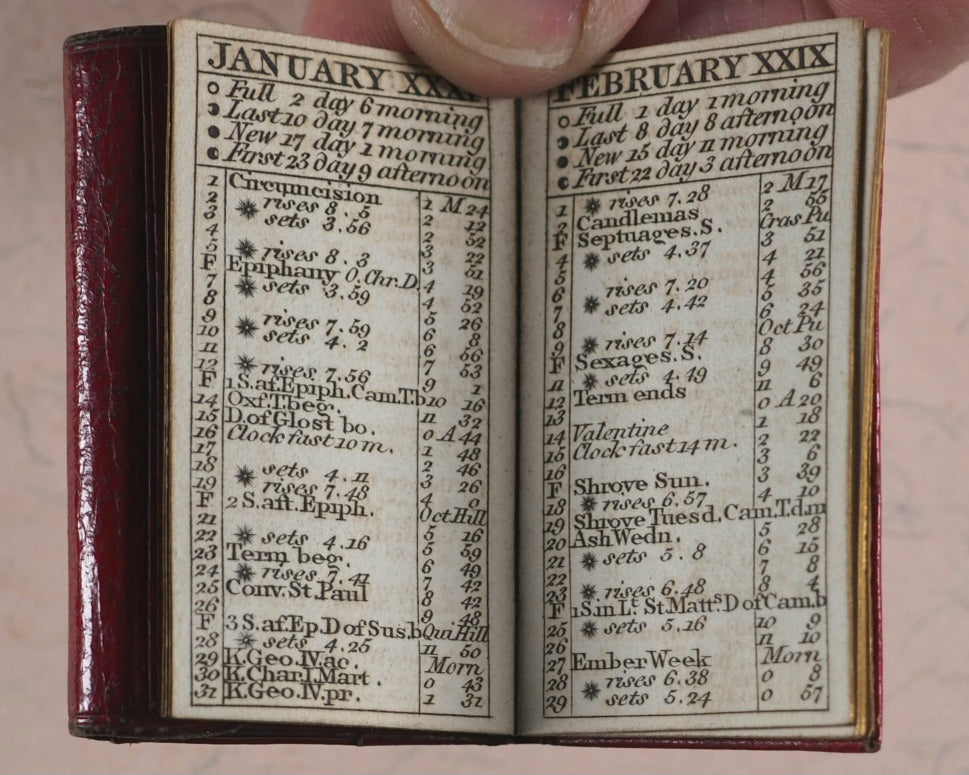 JANUARY XXX
Full 2 day 6 morning
Last 10 day 7 morning
New 17 day 1 morning
First 23 day 9 afternoon
1 Circumcision 1 M 24
2 rises 8 . 5 2 12
3 sets 3.56 2 52
4 3 22
5 rises 8 . 3 3 51
F Epiphany O. Chr. D. 4 19
7 sets 3.59 4 52
8 5 26
9 rises 7.59 6 8
10 sets 4 . 2 6 56
11 7 53
12 rises 7.56 9 1
F 1 S. af. Epiph. Cam. T. b 10 16
14 Oxf. T. beg. 11 32
15 D. of Glost bo. 0 A 44
16 Clock fast 10 m. 1 48
17 2 46
18 sets 4.11 3 26
19 rises 7.48 4 0
F 2 S. aft. Epiph. Oct Hill
21 5 16
22 sets 4.16 5 59
23 Term beg. 6 49
24 rises 7.41 7 42
25 Conv. St. Paul 8 42
26 9 48
F 3 S. af. Ep. D of Sus. b Qui Hill
28 sets 4.25 11 50
29 K. Geo. IV. ac. Morn
30 K. Char. I. Mart. 0 43
31 K. Geo. IV. pr. 1 31
FEBRUARY XXIX
Full 1 day 1 morning
Last 8 day 8 afternoon
New 15 day 11 morning
First 22 day 3 afternoon
1 rises 7.28 2 M 17
2 Candlemas 2 55
F Septuages. S. Cras. Pu
4 sets 4.37 3 51
5 4 21
6 rises 7.20 4 56
7 sets 4.42 5 35
8 6 24
9 rises 7.14 Oct Pu
F Sexages. S. 8 30
11 sets 4.49 9 49
12 Term ends 11 6
13 0 A 20
14 Valentine 1 18
15 Clock fast 14 m. 2 22
16 3 6
F Shrove Sun. 3 39
18 rises 6.57 4 10
19 Shrove Tuesd. Cam. T. d. m
20 Ash Wedn. 5 28
21 sets 5 . 8 6 15
22 7 8
23 rises 6.48 8 4
F 1 S. in Lt. St. Matts. D of Cam. b
25 sets 5.16 10 9
26 11 10
27 Ember Week Morn
28 rises 6.38 0 8
29 sets 5.24 0 57